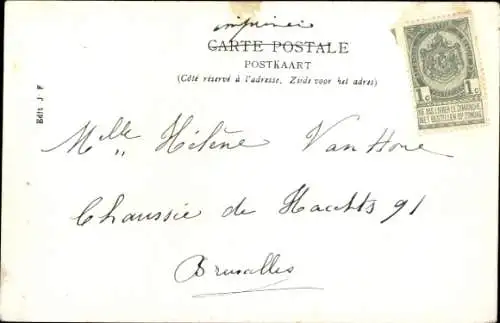 imprimé
CARTE POSTALE
POSTKAART
(Côté réservé à l'adresse. Zijde voor het adres)
1c 1c
NE PAS LIVRER LE DIMANCHE
NIET BESTELLEN OP ZONDAG
Edit J. F
Mlle Hélène Van Hove
Chaussée de Haechts 91
Bruxelles